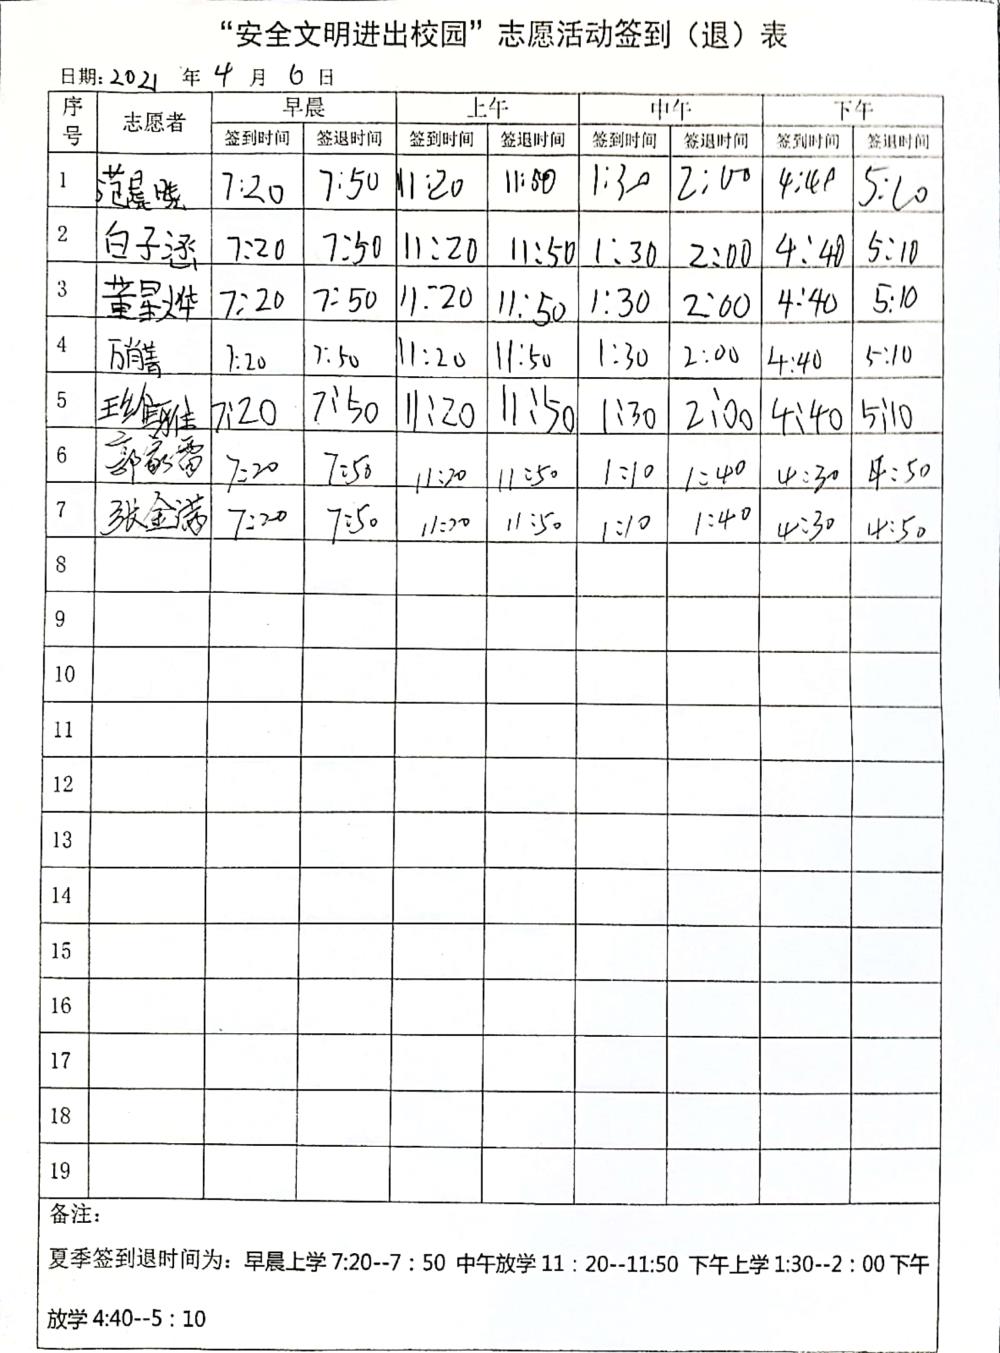 “安全文明进出校园”志愿活动签到（退）表
日期: 2021 年 4 月 6 日
序号 志愿者 早晨 上午 中午 下午
签到时间 签退时间 签到时间 签退时间 签到时间 签退时间 签到时间 签退时间
1 范晨曦 7:20 7:50 11:20 11:50 1:30 2:00 4:40 5:10
2 白子涵 7:20 7:50 11:20 11:50 1:30 2:00 4:40 5:10
3 董星烨 7:20 7:50 11:20 11:50 1:30 2:00 4:40 5:10
4 万肖菁 7:20 7:50 11:20 11:50 1:30 2:00 4:40 5:10
5 王雅 7:20 7:50 11:20 11:50 1:30 2:00 4:40 5:10
6 郭家雷 7:20 7:50 11:20 11:50 1:10 1:40 4:30 4:50
7 张金满 7:20 7:50 11:20 11:50 1:10 1:40 4:30 4:50
8
9
10
11
12
13
14
15
16
17
18
19
备注：
夏季签到退时间为：早晨上学 7:20--7：50 中午放学 11：20--11:50 下午上学 1:30--2：00 下午
放学 4:40--5：10